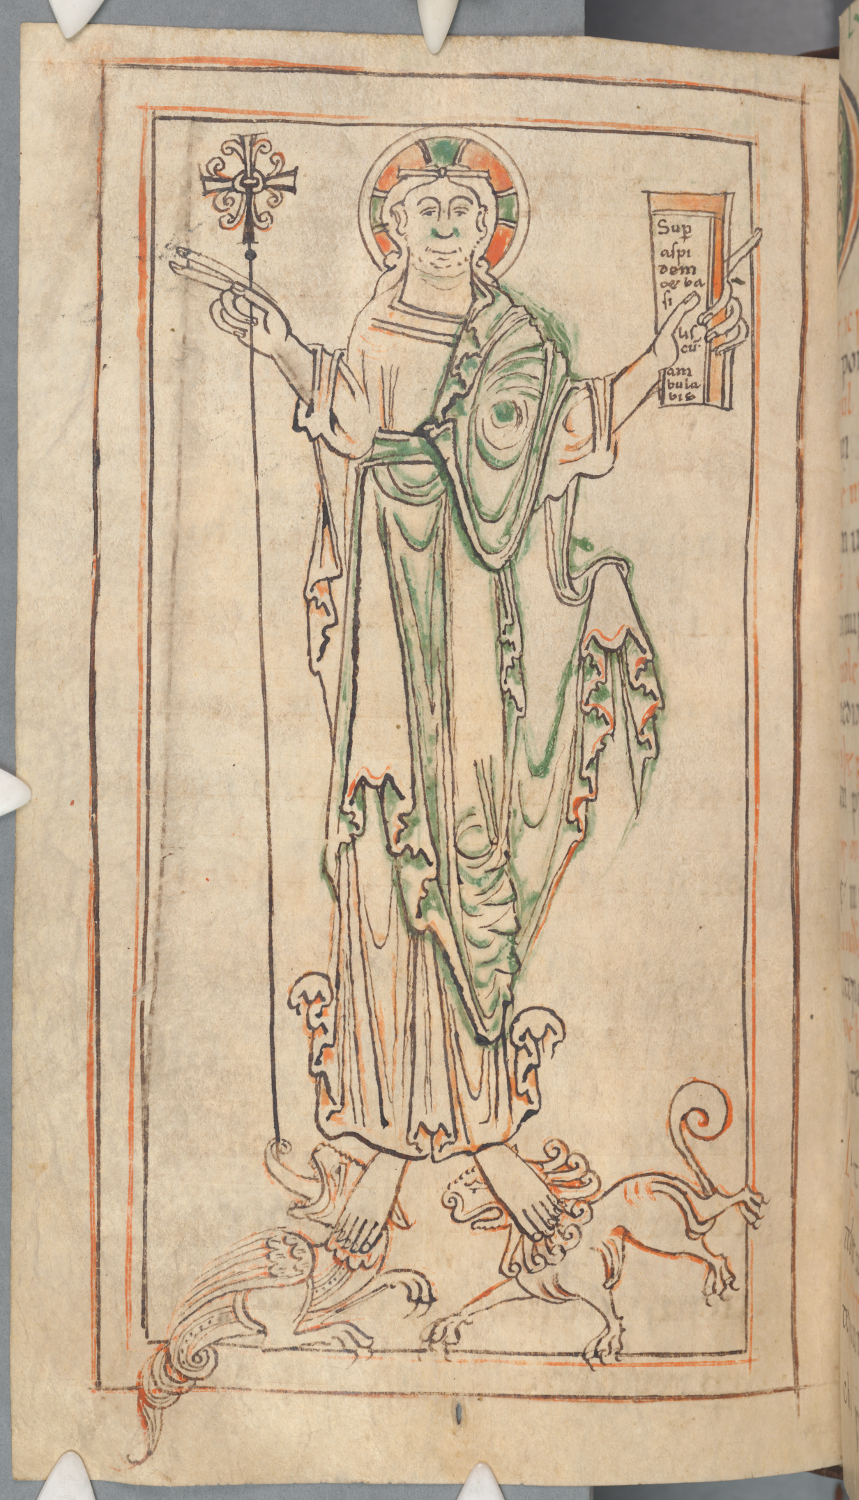 Sup̄
aſpi
dem
& ba
ſi
liſ
cū
am
bula
bis